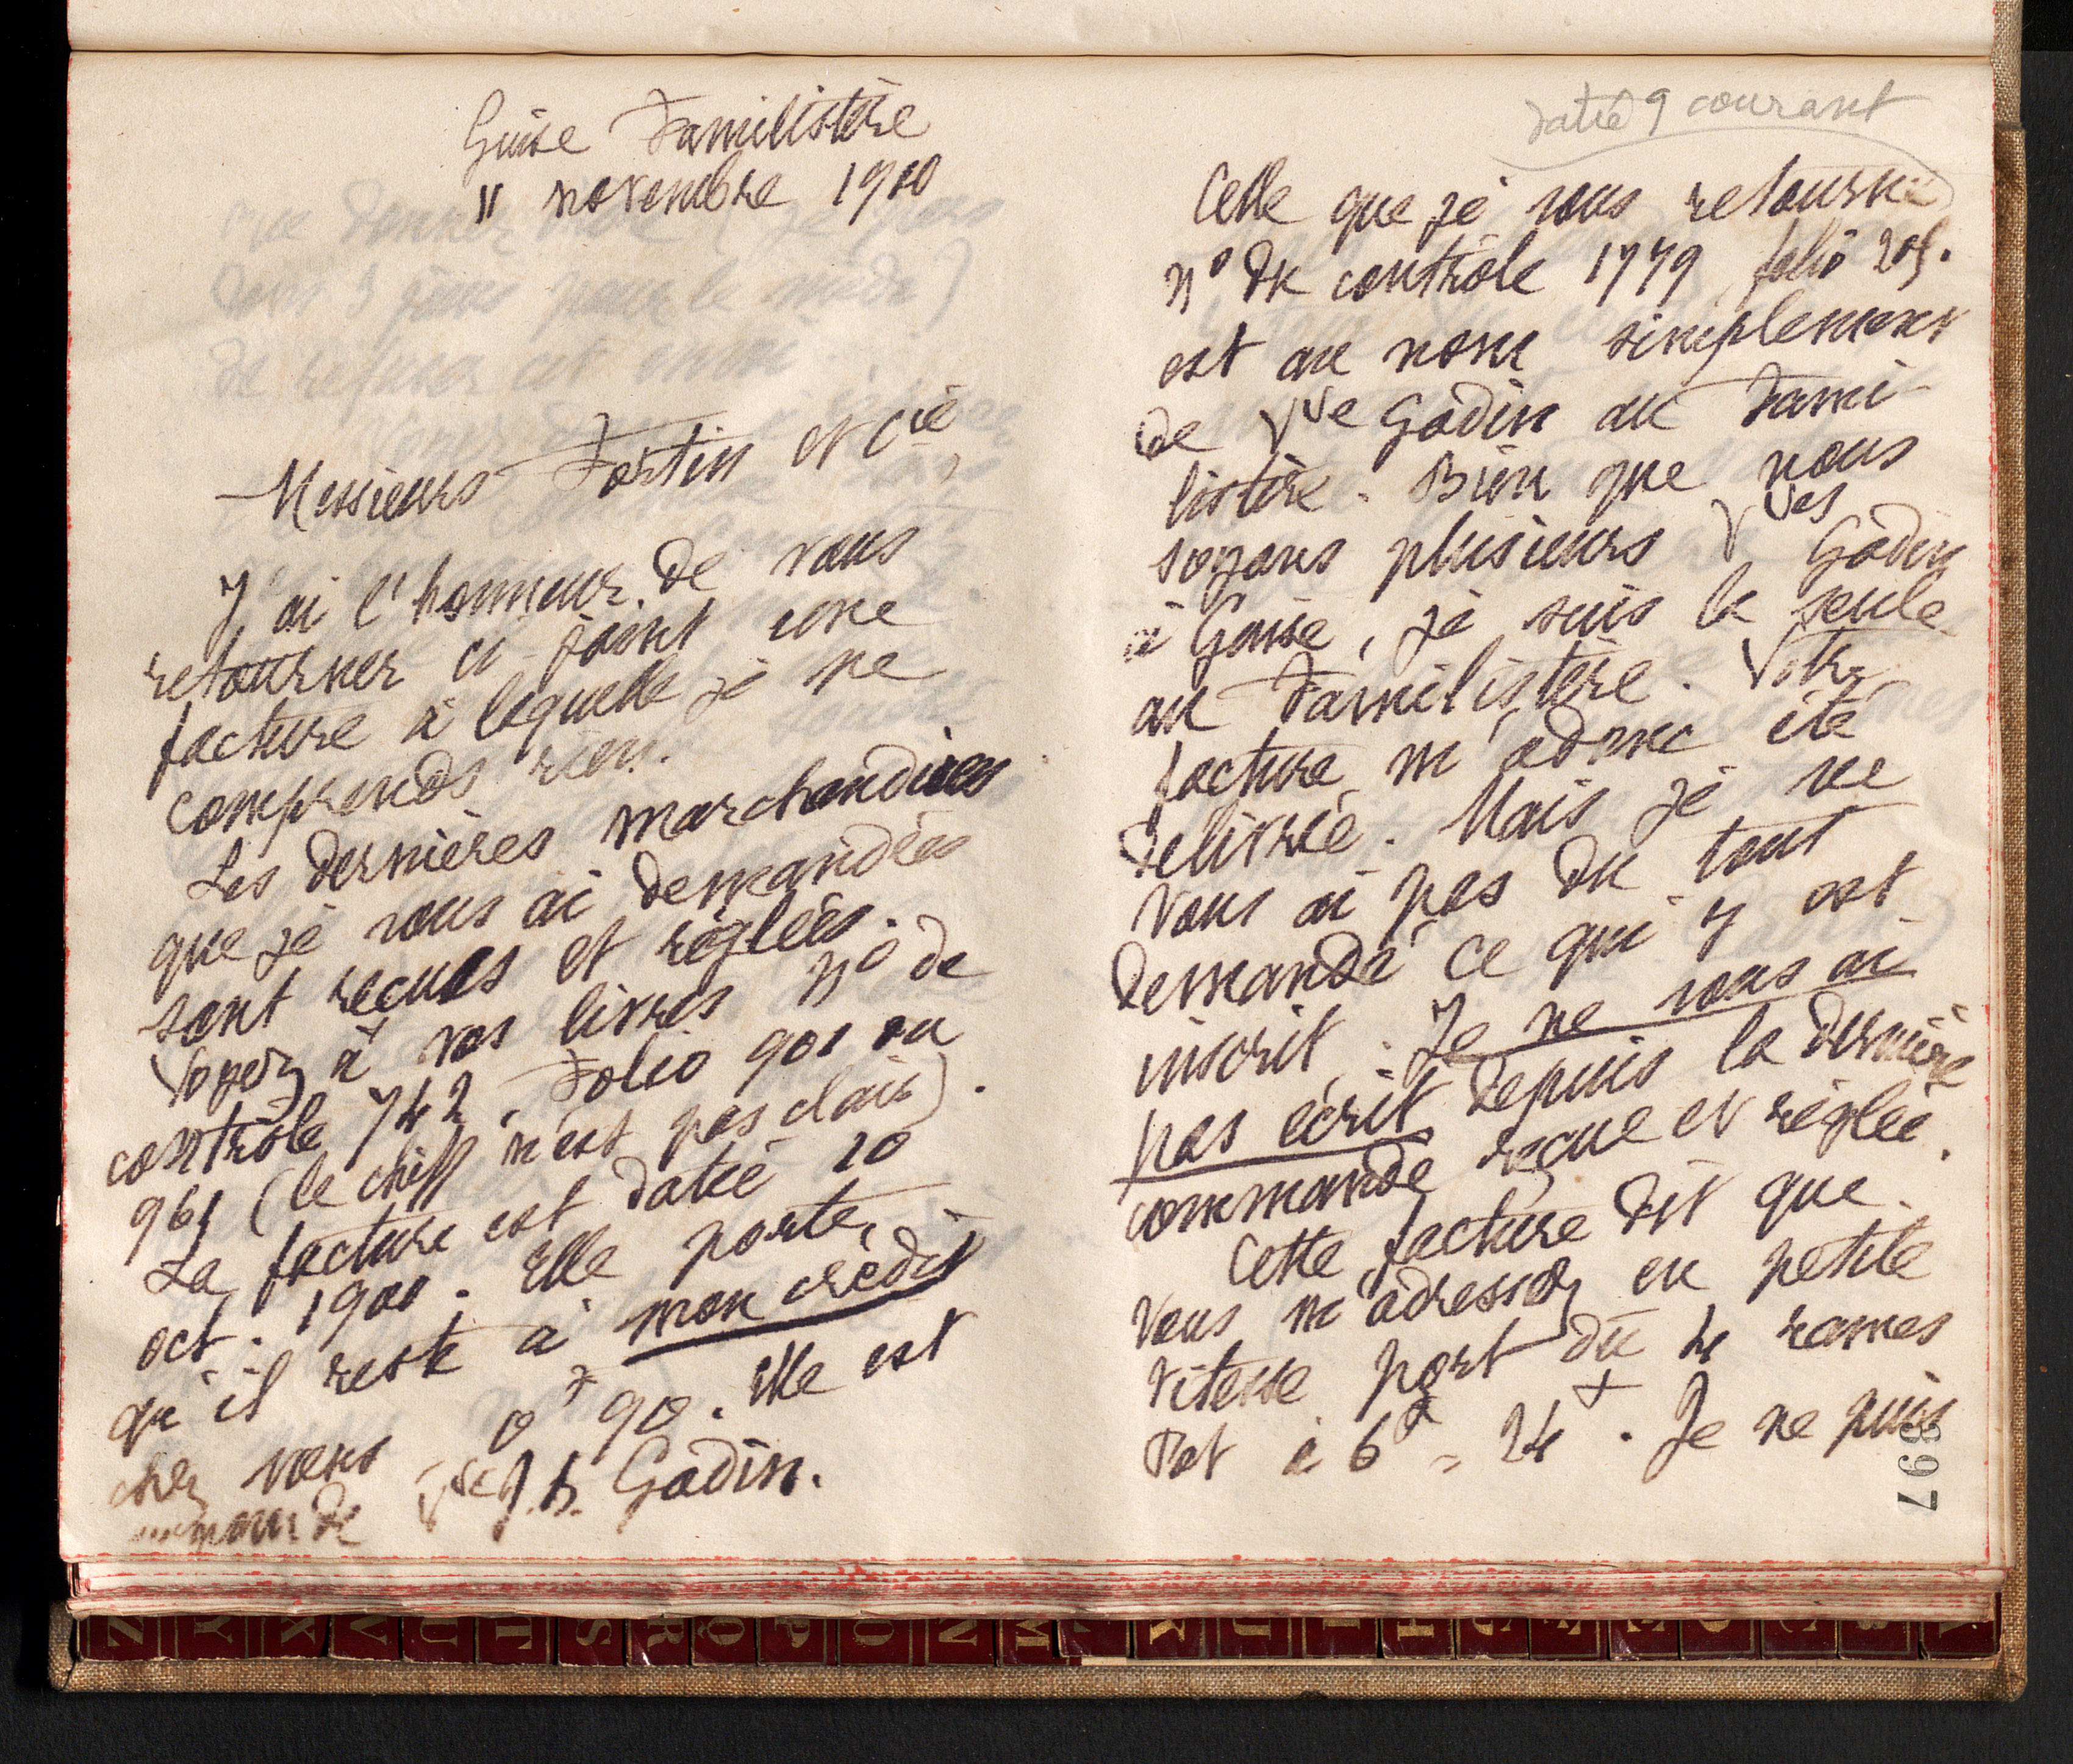 Guise Familistère
11 novembre 1900
Messieurs Fortin et Cie,
J'ai l'honneur de vous
retourner ci-joint une
facture à laquelle je ne
comprends rien.
Les dernières marchandises
que je vous ai demandées
sont reçues et réglées.
Voyez à vos livres no de
contrôle 742, Folio 901 ou
961 (le chiff n'est pas clair).
La facture est datée 20
oct. 1900. Elle porte
qu'il reste à mon crédit
chez vous 0f 90. Elle est
au nom de Vve J. B. Godin.
datée 9 courant
Celle que je vous retourne
no de contrôle 1779, folio 205.
est au nom simplement
de Vve Godin au Fami-
listère. Bien que nous
soyons plusieurs Vves Godin
à Guise, je suis la seule
au Familistère. Votre
facture m'a donc été
délivrée. Mais je ne
vous ai pas du tout
demandé ce qui y est
inscrit. Je ne vous ai
pas écrit depuis la dernière
commande reçue et réglée.
Cette facture dit que
vous m'adressez en petite
vitesse port dû 4 rames
Pot à 6f = 24f. Je ne puis
397
Z Y X V U T S R Q P O N M K J I H G F E D C B A